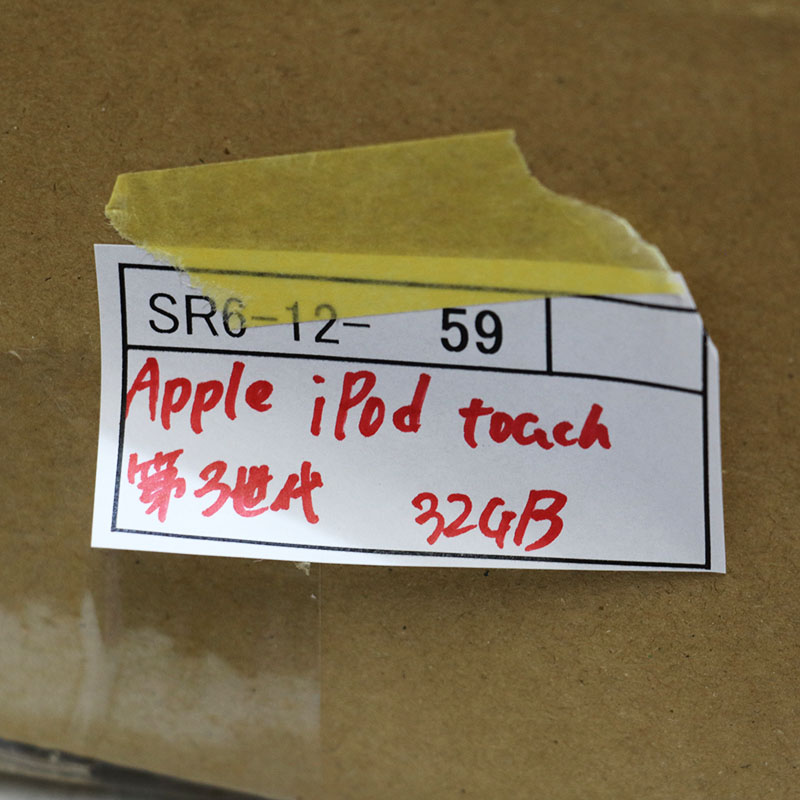 SR6-12- 59
Apple iPod toach
第3世代 32GB